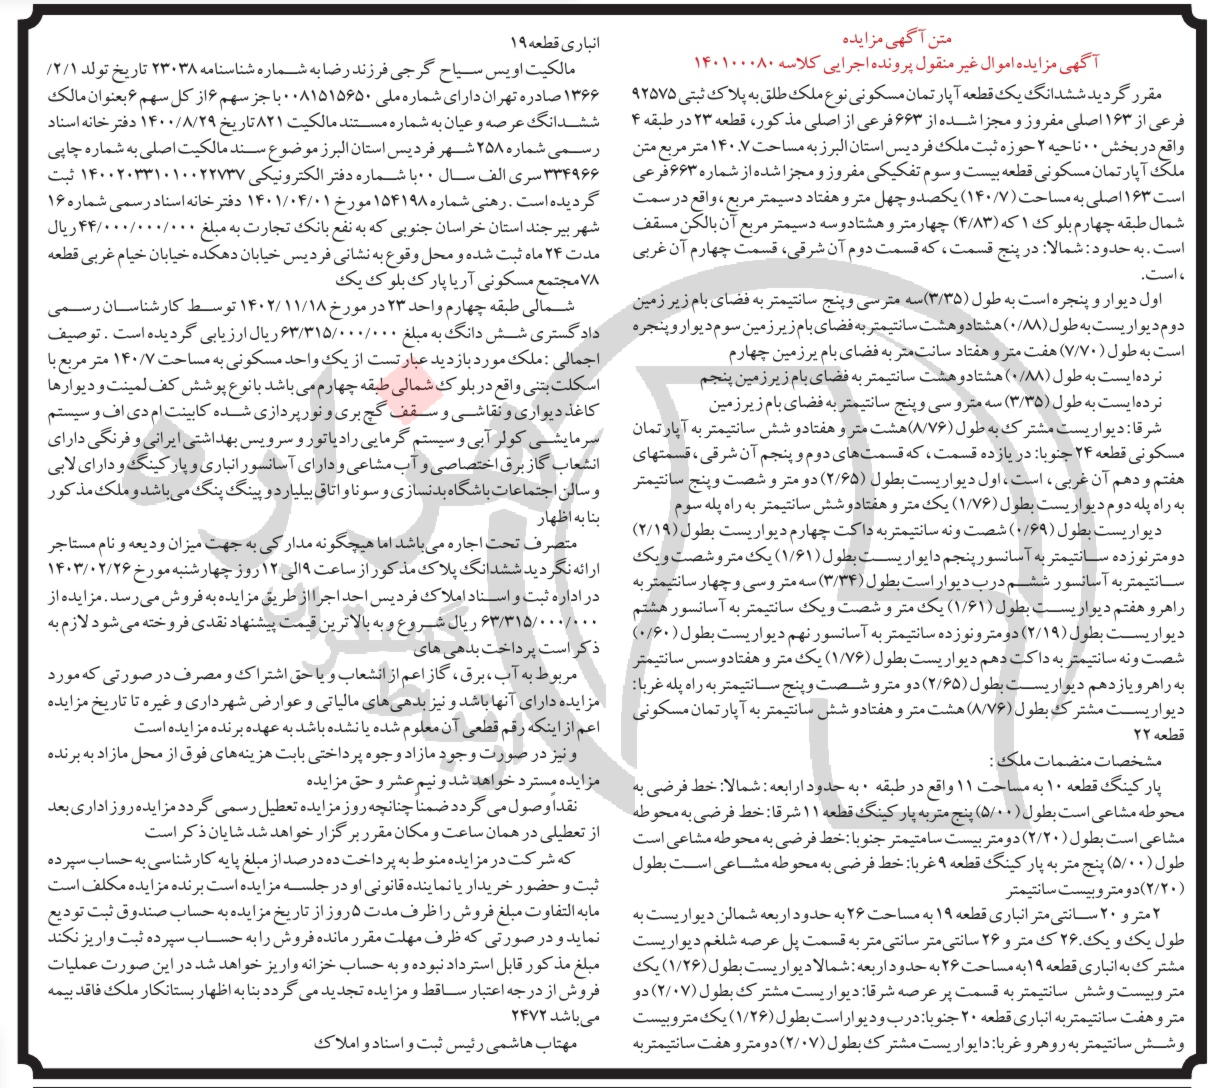 متن آگهی مزایده
آگهی مزایده اموال غیر منقول پرونده اجرایی کلاسه ۱۴۰۱۰۰۰۸۰
مقرر گردید ششدانگ یک قطعه آپارتمان مسکونی نوع ملک طلق به پلاک ثبتی ۹۲۵۷۵
فرعی از ۱۶۳ اصلی مفروز و مجزا شده از ۶۶۳ فرعی از اصلی مذکور، قطعه ۲۳ در طبقه ۴
واقع در بخش ۰۰ ناحیه ۲ حوزه ثبت ملک فردیس استان البرز به مساحت ۱۴۰.۷ متر مربع متن
ملک آپارتمان مسکونی قطعه بیست و سوم تفکیکی مفروز و مجزا شده از شماره ۶۶۳ فرعی
است ۱۶۳ اصلی به مساحت (۱۴۰/۷) یکصد و چهل متر و هفتاد دسیمتر مربع ، واقع در سمت
شمال طبقه چهارم بلوک ۱ که (۴/۸۳) چهار متر و هشتادوسه دسیمتر مربع آن بالکن مسقف
است . به حدود : شمالا: در پنج قسمت ، که قسمت دوم آن شرقی، قسمت چهارم آن غربی
، است.
اول دیوار و پنجره است به طول (۳/۳۵) سه متر سی و پنج سانتیمتر به فضای بام زیر زمین
دوم دیواریست به طول (۰/۸۸) هشتادوهشت سانتیمتر به فضای بام زیرزمین سوم دیوار و پنجره
است به طول (۷/۷۰) هفت متر و هفتاد سانت متر به فضای بام یرزمین چهارم
نرده ایست به طول (۰/۸۸) هشتادوهشت سانتیمتر به فضای بام زیرزمین پنجم
نرده ایست به طول (۳/۳۵) سه متر و سی و پنج سانتیمتر به فضای بام زیرزمین
شرقا: دیواریست مشترک به طول (۸/۷۶) هشت متر و هفتادو شش سانتیمتر به آپارتمان
مسکونی قطعه ۲۴ جنوبا: در یازده قسمت ، که قسمت های دوم و پنجم آن شرقی، قسمتهای
هفتم و دهم آن غربی ، است ، اول دیواریست بطول (۲/۶۵) دو متر و شصت و پنج سانتیمتر
به راه پله دوم دیواریست بطول (۱/۷۶) یک متر و هفتادوشش سانتیمتر به راه پله سوم
دیواریست بطول (۰/۶۹) شصت ونه سانتیمتر به داکت چهارم دیواریست بطول (۲/۱۹)
دو متر نوزده سانتیمتر به آسانسور پنجم دایواریست بطول (۱/۶۱) یک متر و شصت و یک
سانتیمتر به آسانسور ششم درب دیوار است بطول (۳/۳۴) سه متر و سی و چهار سانتیمتر به
راهرو هفتم دیواریست بطول (۱/۶۱) یک متر و شصت و یک سانتیمتر به آسانسور هشتم
دیواریست بطول (۲/۱۹) دو متر و نوزده سانتیمتر به آسانسور نهم دیواریست بطول (۰/۶۰)
شصت ونه سانتیمتر به داکت دهم دیواریست بطول (۱/۷۶) یک متر و هفتادوسس سانتیمتر
به راهرو یازدهم دیواریست بطول (۲/۶۵) دو متر و شصت و پنج سانتیمتر به راه پله غربا:
دیواریست مشترک بطول (۸/۷۶) هشت متر و هفتادو شش سانتیمتر به آپارتمان مسکونی
قطعه ۲۲
مشخصات منضمات ملک :
پارکینگ قطعه ۱۰ به مساحت ۱۱ واقع در طبقه ۰ به حدود اربعه : شمالا: خط فرضی به
محوطه مشاعی است بطول (۵/۰۰) پنج متر به پارکینگ قطعه ۱۱ شرقا: خط فرضی به محوطه
مشاعی است بطول (۲/۲۰) دو متر بیست سامتیمتر جنوبا: خط فرضی به محوطه مشاعی است
طول (۵/۰۰) پنج متر به پارکینگ قطعه ۹ غربا: خط فرضی به محوطه مشاعی است بطول
(۲/۲۰) دو متر و بیست سانتیمتر
۲ متر و ۲۰ سانتی متر انباری قطعه ۱۹ به مساحت ۲۶ به حدود اربعه شمالن دیواریست به
طول یک و یک.۲۶ ک متر و ۲۶ سانتی متر سانتی متر به قسمت پل عرصه شلغم دیواریست
مشترک به انباری قطعه ۱۹ به مساحت ۲۶ به حدود اربعه : شمالا دیواریست بطول (۱/۲۶) یک
متر و بیست وشش سانتیمتر به قسمت پر عرصه شرقا: دیواریست مشترک بطول (۲/۰۷) دو
متر و هفت سانتیمتر به انباری قطعه ۲۰ جنوبا: درب و دیوار است بطول (۱/۲۶) یک متر و بیست
وشش سانتیمتر به روهرو غربا: دایواریست مشترک بطول (۲/۰۷) دو متر و هفت سانتیمتر به
انباری قطعه ۱۹
مالکیت اویس سیاح گرجی فرزند رضا به شماره شناسنامه ۲۳۰۳۸ تاریخ تولد ۲/۱/
۱۳۶۶ صادره تهران دارای شماره ملی ۰۰۸۱۵۱۵۶۵۰ با جز سهم ۶ از کل سهم ۶ بعنوان مالک
ششدانگ عرصه و عیان به شماره مستند مالکیت ۸۲۱ تاریخ ۱۴۰۰/۸/۲۹ دفترخانه اسناد
رسمی شماره ۲۵۸ شهر فردیس استان البرز موضوع سند مالکیت اصلی به شماره چاپی
۳۳۴۹۶۶ سری الف سال ۰۰ با شماره دفتر الکترونیکی ۱۴۰۰۲۰۳۳۱۰۱۰۰۲۲۷۳۷ ثبت
گردیده است . رهنی شماره ۱۵۴۱۹۸ مورخ ۱۴۰۱/۰۴/۰۱ دفترخانه اسناد رسمی شماره ۱۶
شهر بیرجند استان خراسان جنوبی که به نفع بانک تجارت به مبلغ ۴۴/۰۰۰/۰۰۰/۰۰۰ ریال
مدت ۲۴ ماه ثبت شده و محل وقوع به نشانی فردیس خیابان دهکده خیابان خیام غربی قطعه
۷۸ مجتمع مسکونی آریا پارک بلوک یک
شمالی طبقه چهارم واحد ۲۳ در مورخ ۱۴۰۲/۱۱/۱۸ توسط کارشناسان رسمی
دادگستری شش دانگ به مبلغ ۶۳/۳۱۵/۰۰۰/۰۰۰ ریال ارزیابی گردیده است . توصیف
اجمالی : ملک مورد بازدید عبارتست از یک واحد مسکونی به مساحت ۱۴۰/۷ متر مربع با
اسکلت بتنی واقع در بلوک شمالی طبقه چهارم می باشد با نوع پوشش کف لمینت و دیوارها
کاغذ دیواری و نقاشی و سقف گچ بری و نورپردازی شده کابینت ام دی اف و سیستم
سرمایشی کولر آبی و سیستم گرمایی رادیاتور و سرویس بهداشتی ایرانی و فرنگی دارای
انشعاب گاز برق اختصاصی و آب مشاعی و دارای آسانسور انباری و پارکینگ و دارای لابی
و سالن اجتماعات باشگاه بدنسازی و سونا و اتاق بیلیارد و پینگ پنگ می باشد و ملک مذکور
بنا به اظهار
متصرف تحت اجاره می باشد اما هیچگونه مدارکی به جهت میزان ودیعه و نام مستاجر
ارائه نگردید ششدانگ پلاک مذکور از ساعت ۹ الی ۱۲ روز چهارشنبه مورخ ۱۴۰۳/۰۲/۲۶
در اداره ثبت و اسناد املاک فردیس احد اجرا از طریق مزایده به فروش می رسد . مزایده از
۶۳/۳۱۵/۰۰۰/۰۰۰ ریال شروع و به بالاترین قیمت پیشنهاد نقدی فروخته می شود لازم به
ذکر است پرداخت بدهی های
مربوط به آب ، برق ، گاز اعم از انشعاب و یا حق اشتراک و مصرف در صورتی که مورد
مزایده دارای آنها باشد و نیز بدهی های مالیاتی و عوارض شهرداری و غیره تا تاریخ مزایده
اعم از اینکه رقم قطعی آن معلوم شده یا نشده باشد به عهده برنده مزایده است
و نیز در صورت وجود مازاد وجوه پرداختی بابت هزینه های فوق از محل مازاد به برنده
مزایده مسترد خواهد شد و نیم عشر و حق مزایده
نقداً وصول می گردد ضمناً چنانچه روز مزایده تعطیل رسمی گردد مزایده روز اداری بعد
از تعطیلی در همان ساعت و مکان مقرر برگزار خواهد شد شایان ذکر است
که شرکت در مزایده منوط به پرداخت ده درصد از مبلغ پایه کارشناسی به حساب سپرده
ثبت و حضور خریدار یا نماینده قانونی او در جلسه مزایده است برنده مزایده مکلف است
مابه التفاوت مبلغ فروش را ظرف مدت ۵ روز از تاریخ مزایده به حساب صندوق ثبت تودیع
نماید و در صورتی که ظرف مهلت مقرر مانده فروش را به حساب سپرده ثبت واریز نکند
مبلغ مذکور قابل استرداد نبوده و به حساب خزانه واریز خواهد شد در این صورت عملیات
فروش از درجه اعتبار ساقط و مزایده تجدید می گردد بنا به اظهار بستانکار ملک فاقد بیمه
می باشد ۲۴۷۲
مهتاب هاشمی رئیس ثبت و اسناد و املاک
هزاره